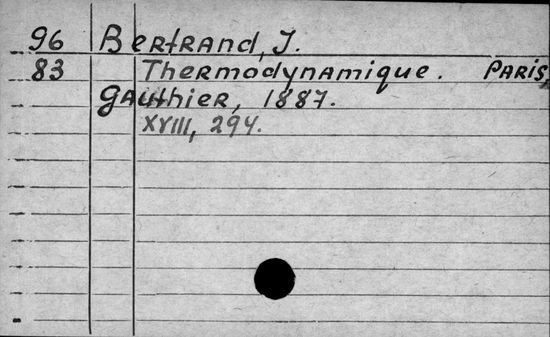 96 Bertrand, J.
83 Thermodynamique. Paris,
Gauthier, 1887.
XVIII, 294.